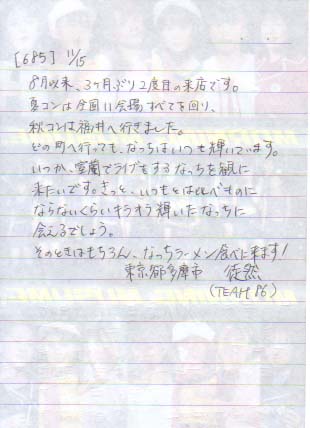 [685] 11/15
8月以来、3ヶ月ぶり2度目の来店です。
夏コンは全国11会場すべてを回り、
秋コンは福井へ行きました。
どの町へ行っても、なっちはいつも輝いています。
いつか、室蘭でライブをするなっちを観に
来たいです。きっと、いつもとは比べものに
ならないくらいキラキラ輝いたなっちに
会えるでしょう。
そのときはもちろん、なっちラーメン食べに来ます!
東京都多摩市 徒然
(TEAM 86)